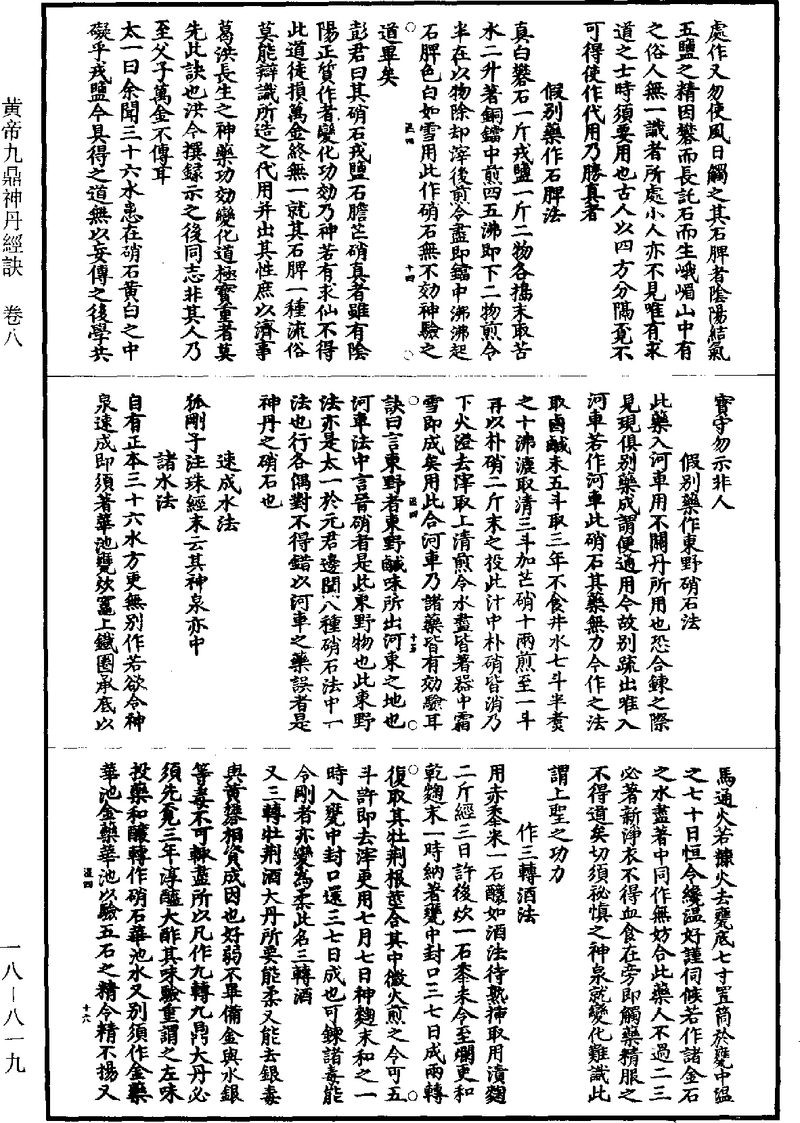 處作又勿使風日觸之其石脾者陰陽結氣
五鹽之精因礬而長託石而生峨嵋山中有
之俗人無一識者所處小人亦不見唯有求
道之士時須要用也古人以四方分隔覓不
可得使作代用乃勝真者
假別藥作石脾法
真白礬石一斤戎鹽一斤二物各擣末取苦
水二升著銅鐺中煎四五沸即下二物煎令
半在以物除却滓後煎令盡即鐺中沸沸起
石脾色白如雪用此作硝石無不効神驗之
道畢矣
彭君曰其硝石戎鹽石膽芒硝真者雖有陰
陽正質作者變化功効乃神若有求仙不得
此道徒損萬金終無一就其石脾一種流俗
莫能辯識所造之代用并出其性庶以濟事
葛洪長生之神藥功効變化道極寶重者莫
先此訣也洪今撰錄示之後同志非其人乃
至父子萬金不傳耳
太一曰余聞三十六水患在硝石黃白之中
礙乎戎鹽今具得之道無以妄傳之後學共
寶守勿示非人
假別藥作東野硝石法
此藥入河車用不關丹所用也恐合鍊之際
見現俱別藥成謂便通用今故別疏出唯入
河車若作河車此硝石其藥無力令作之法
取鹵鹹末五斗取三年不食井水七斗半煑
之十沸濾取清三斗加芒硝十兩煎至一斗
再以朴硝二斤末之投此汁中朴硝皆消乃
下火澄去滓取上清煎令水盡皆著器中霜
雪即成矣用此合河車乃諸藥皆有効驗耳
訣曰言東野者東野鹹味所出河東之地也
河車法中言晉硝者是此東野物也此東野
法亦是太一於元君邊聞八種硝石法中一
法也行各偶對不得錯以河車之藥誤者是
神丹之硝石也
速成水法
狐剛子注珠經末云其神泉亦中
諸水法
自有正本三十六水方更無別作若欲令神
泉速成即須著華池甕炊竈上鐵圈承底以
馬通火若糠火去甕底七寸置筒於甕中溫
之七十日恒令纔溫好謹伺候若作諸金石
之水盡著中同作無妨合此藥人不過二三
必著新淨衣不得血食在旁即觸藥精服之
不得道矣切須祕慎之神泉就變化難識此
謂上聖之功力
作三轉酒法
用赤黍米一石釀如酒法待熟押取用漬麴
二斤經三日許後炊一石黍未令至爛更和
乾麴末一時納著甕中封口三七日成兩轉
復取其牡荆根莖合其中微火煎之令可五
斗許即去滓更用七月七日神麴末和之一
時入甕中封口還三七日成也可鍊諸毒能
令剛者亦變為柔此名三轉酒
又三轉牡荆酒大丹所要能柔又能去銀毒
與黃礬相資成因也好弱不畢備金與水銀
等毒不可輙盡所以凡作九轉九鼎大丹必
須先覓三年淳醯大酢其味驗重謂之左味
投藥和釀轉作硝石華池水又別須作金藥
華池金藥華池以驗五石之精令精不揚又
黃帝九鼎神丹經訣 卷八
一八－八一九